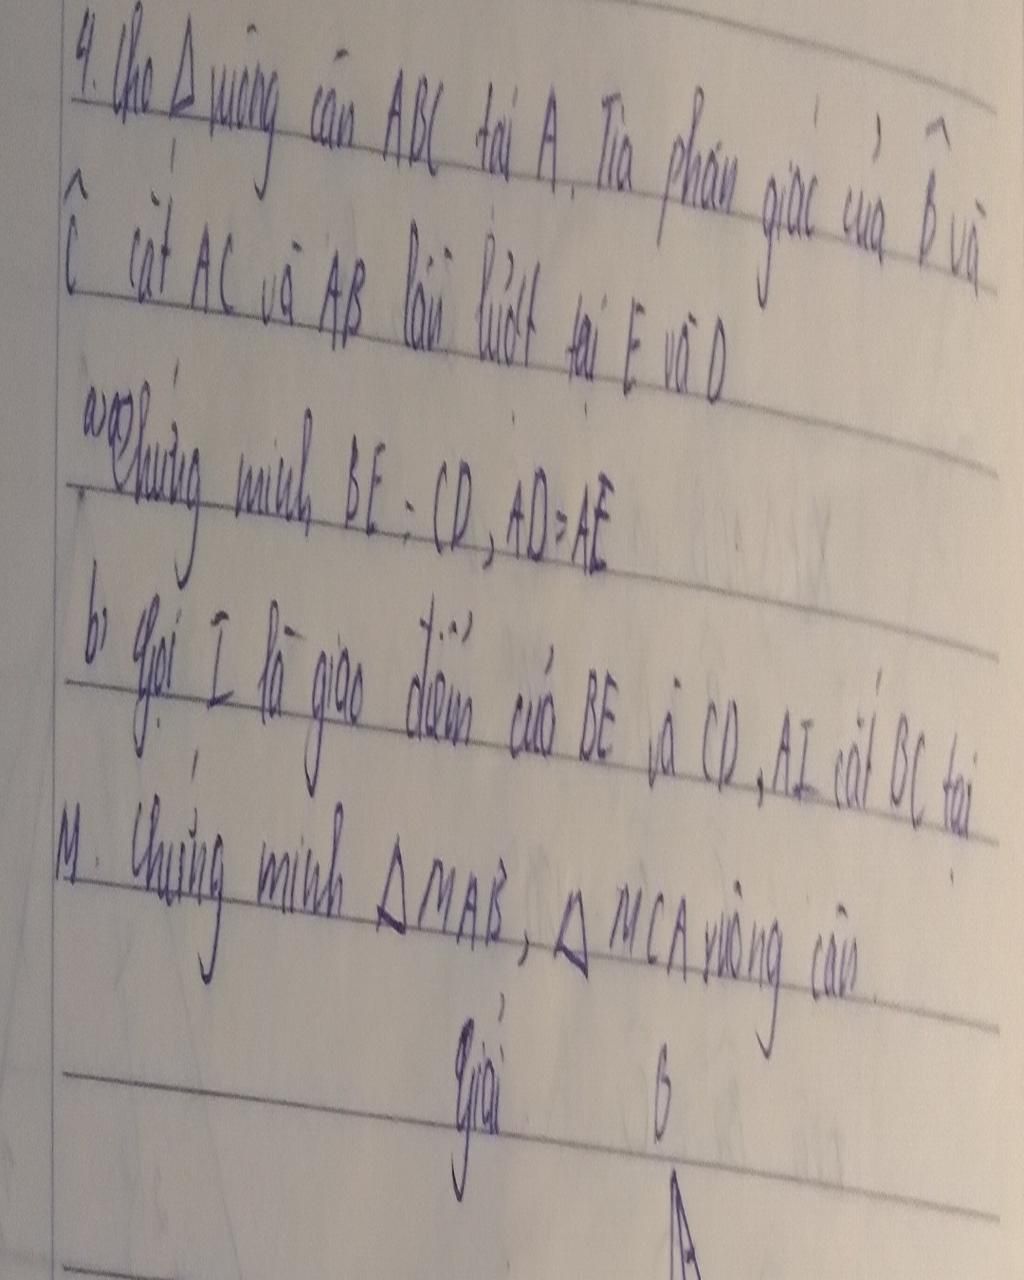 4. Cho Δ vuông cân ABC tại A. Tia phân giác của B̂ và
Ĉ cắt AC và AB lần lượt tại E và D
a) Chứng minh BE = CD, AD = AE
b) Gọi I là giao điểm của BE và CD, AI cắt BC tại
M. Chứng minh Δ MAB, Δ MCA vuông cân
giải
B